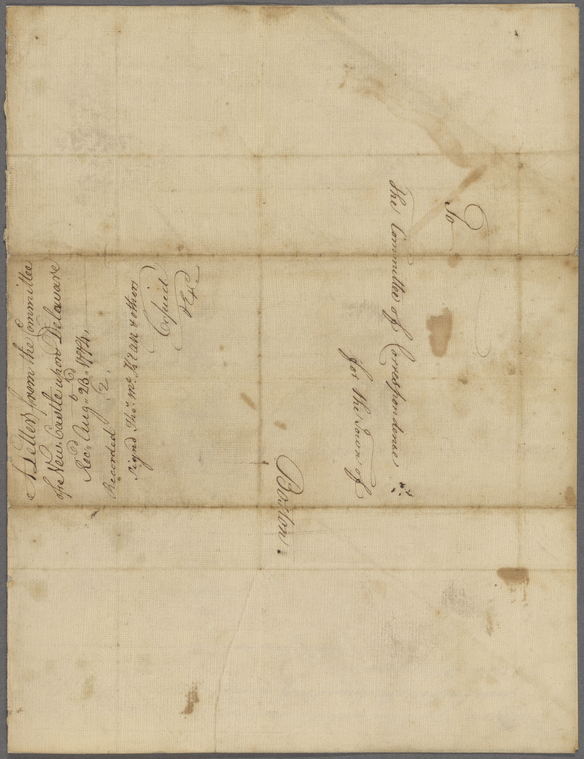 To
The Committee of Correspondence
for the Town of
Boston.
A Letter from the Committee
of New Castle upon Delaware
Recd. Augt. 26. 1774.
Recorded 2.
Signd Thos. McKean & others
Copied